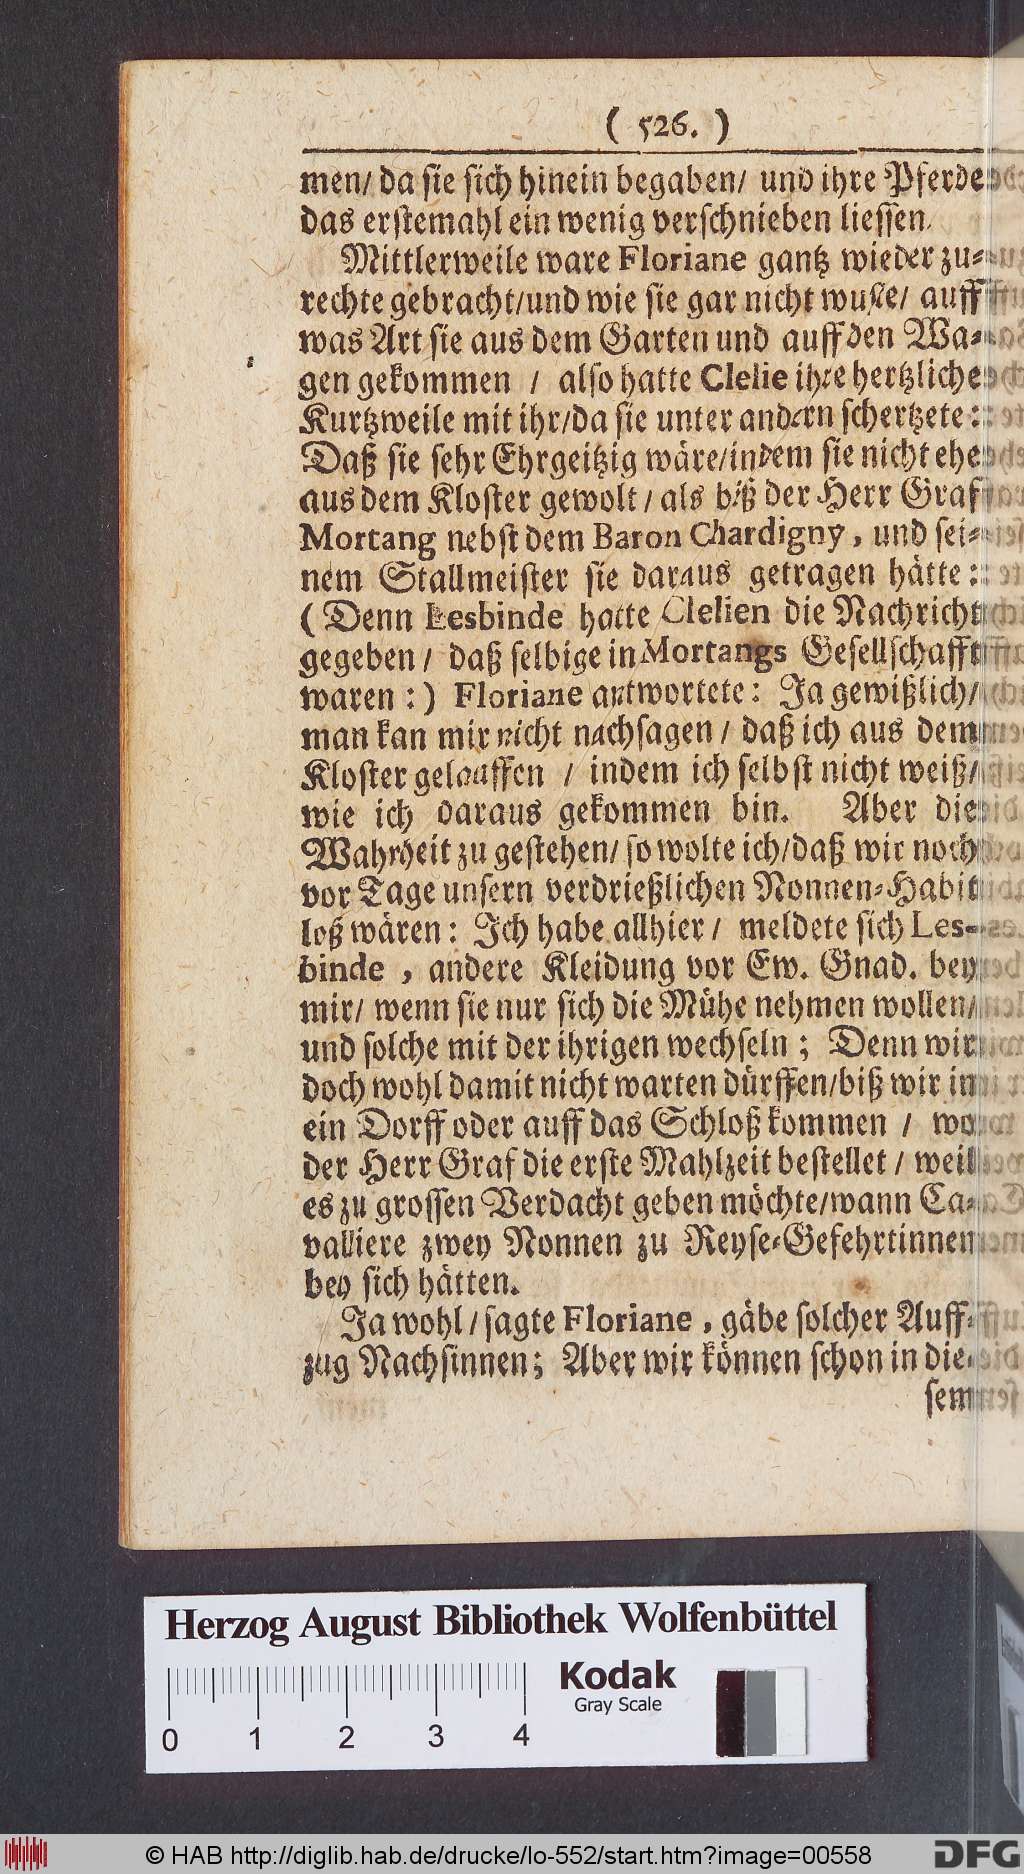 ( 526. )
men/ da sie sich hinein begaben/ und ihre Pferde
das erstemahl ein wenig verschnieben liessen.
Mittlerweile ware Floriane gantz wieder zu-
rechte gebracht/und wie sie gar nicht wuste/ auff
was Art sie aus dem Garten und auff den Wa-
gen gekommen / also hatte Clelie ihre hertzliche
Kurtzweile mit ihr/da sie unter andern schertzete:
Daß sie sehr Ehrgeitzig wäre/indem sie nicht ehe
aus dem Kloster gewolt / als biß der Herr Graf
Mortang nebst dem Baron Chardigny, und sei-
nem Stallmeister sie daraus getragen hätte:
(Denn Lesbinde hatte Clelien die Nachricht
gegeben / daß selbige in Mortangs Gesellschafft
waren :) Floriane antwortete: Ja gewißlich/
man kan mir nicht nachsagen / daß ich aus dem
Kloster gelauffen / indem ich selbst nicht weiß/
wie ich daraus gekommen bin. Aber die
Wahrheit zu gestehen/ so wolte ich/daß wir noch
vor Tage unsern verdrießlichen Nonnen-Habit
loß wären: Ich habe allhier / meldete sich Les-
binde, andere Kleidung vor Ew. Gnad. bey
mir/ wenn sie nur sich die Mühe nehmen wollen/
und solche mit der ihrigen wechseln; Denn wir
doch wohl damit nicht warten dürffen/biß wir in
ein Dorff oder auff das Schloß kommen / wo
der Herr Graf die erste Mahlzeit bestellet / weil
es zu grossen Verdacht geben möchte/wann Ca-
valliere zwey Nonnen zu Reyse-Gefehrtinnen
bey sich hätten.
Ja wohl / sagte Floriane, gäbe solcher Auff-
zug Nachsinnen; Aber wir können schon in die-
sem
Herzog August Bibliothek Wolfenbüttel
Kodak
Gray Scale
0 1 2 3 4
© HAB http://diglib.hab.de/drucke/lo-552/start.htm?image=00558
DFG